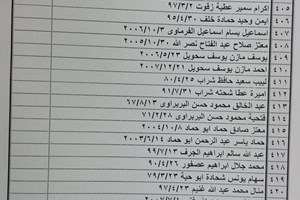 ٤٠٥ اكرام سمير عطية زقوت ٩٧/٣/٢
٤٠٦ ايمن وحيد حمادة خلف ٩٥/٤/٣٠
٤٠٧ اسماعيل بسام اسماعيل الفرماوي ٢٠٠٦/١٠/٣
٤٠٨ معتز صلاح عبد الفتاح نصر الله ٢٠٠٥/١٠/٣٠
٤٠٩ يوسف مازن يوسف سحويل ٢٠٠٦/٥/٢٣
٤١٠ احمد مازن يوسف سحويل ٢٠٠٧/١٢/٢١
٤١١ لبيب سعيد حافظ شراب ٨٠/٤/٢٥
٤١٢ اميرة عطا شحته شراب ٩١/٥/٢
٤١٣ عبد الخالق محمود حسن البربراوى ٦٧/٨/١٣
٤١٤ فتحية محمود حسن البربراوى ٧١/٢/٢٨
٤١٥ معتز صادق حماد ابو حماد ٢٠٠٤/١٠/٨
٤١٦ حماد ياسر عبد الرحمن ابو حماد ٢٠٠٣/٦/١٤
٤١٧ عبد الله سالم ابراهيم الجرف ٩٩/٧/١٣
٤١٨ محمد جلال ابراهيم عصفور ٩٠/٤/٢٦
٤١٩ سهام يونس شحادة ابو حية ٧٩/٣/٢٣
٤٢٠ منال محمد عبد الله غنيم ٩٧/٤/٢٢